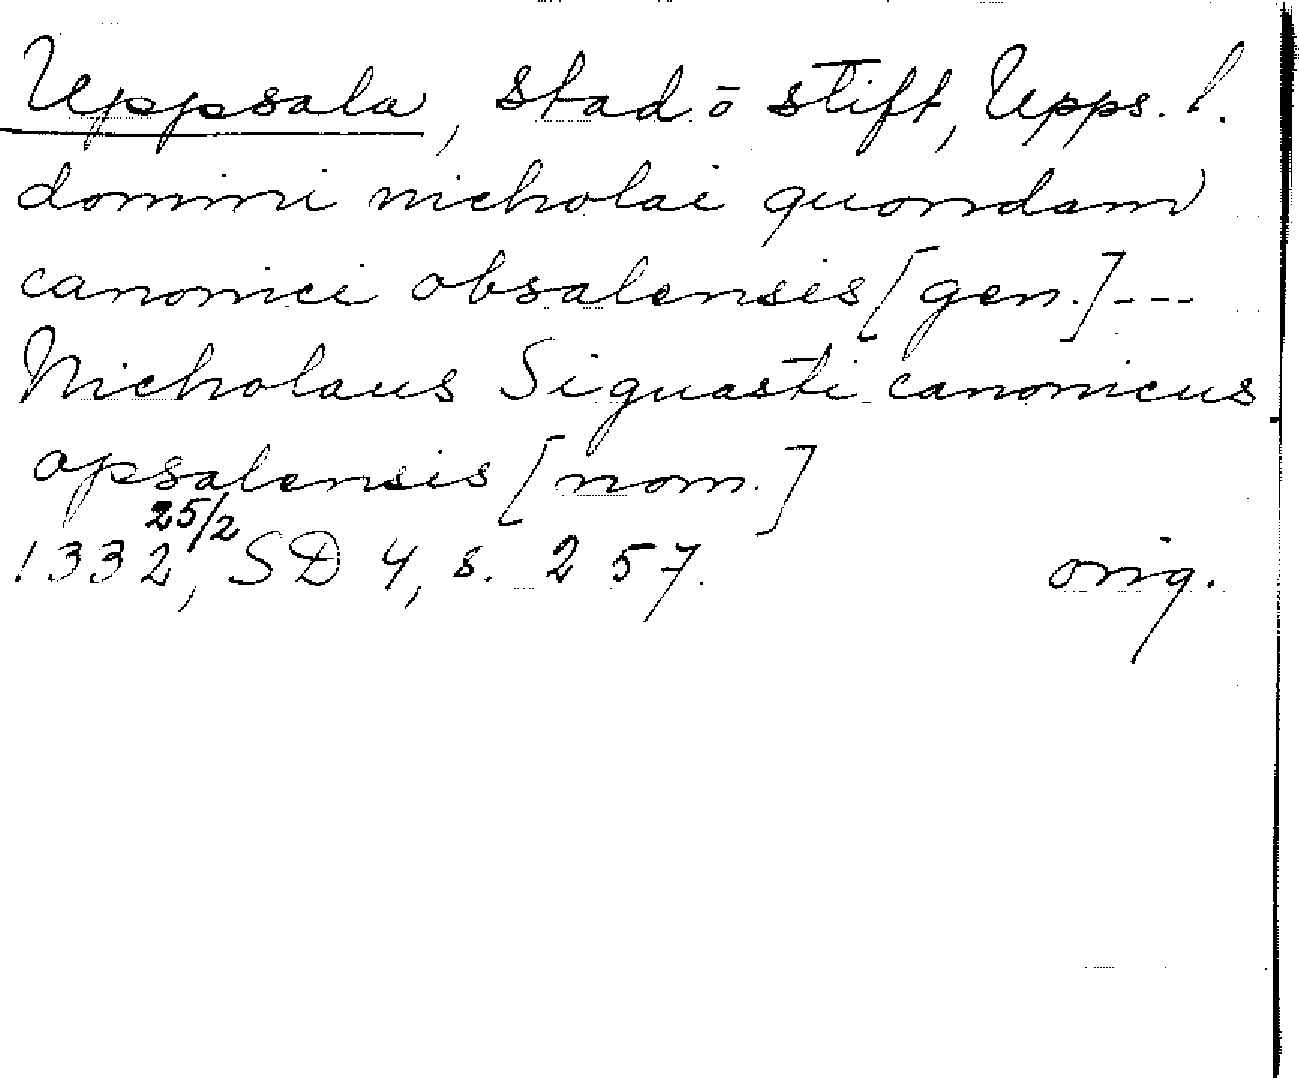 Uppsala, stad o stift, Upps. l.
domini nicholai quondam
canonici obsalensis [gen.] ---
Nicholaus Siguasti canonicus
opsalensis [nom.]
1332 25/2, SD 4, s. 257. orig.